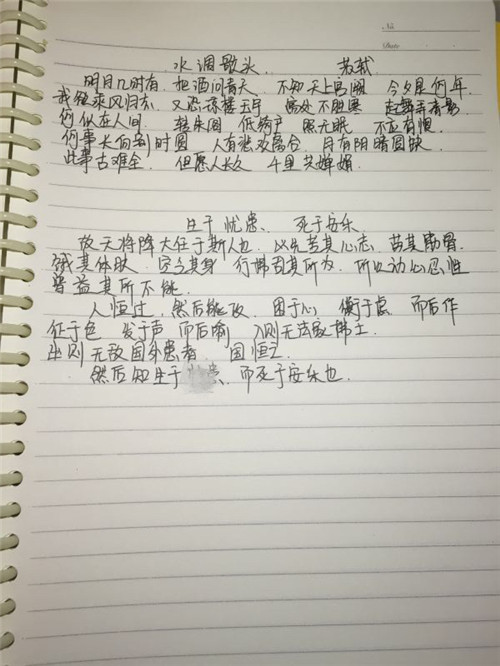 No
Date
水调歌头 苏轼
明月几时有 把酒问青天 不知天上宫阙 今夕是何年
我欲乘风归去 又恐琼楼玉宇 高处不胜寒 起舞弄清影
何似在人间 转朱阁 低绮户 照无眠 不应有恨
何事长向别时圆 人有悲欢离合 月有阴晴圆缺
此事古难全 但愿人长久 千里共婵娟
生于忧患、死于安乐
故天将降大任于斯人也.必先苦其心志、苦其筋骨.
饿其体肤.空乏其身 行拂乱其所为.所以动心忍性
曾益其所不能.
人恒过,然后能改.困于心 衡于虑 而后作
征于色 发于声 而后喻 入则无法家拂士
出则无敌国外患者 国恒亡
然后知生于 患、而死于安乐也.